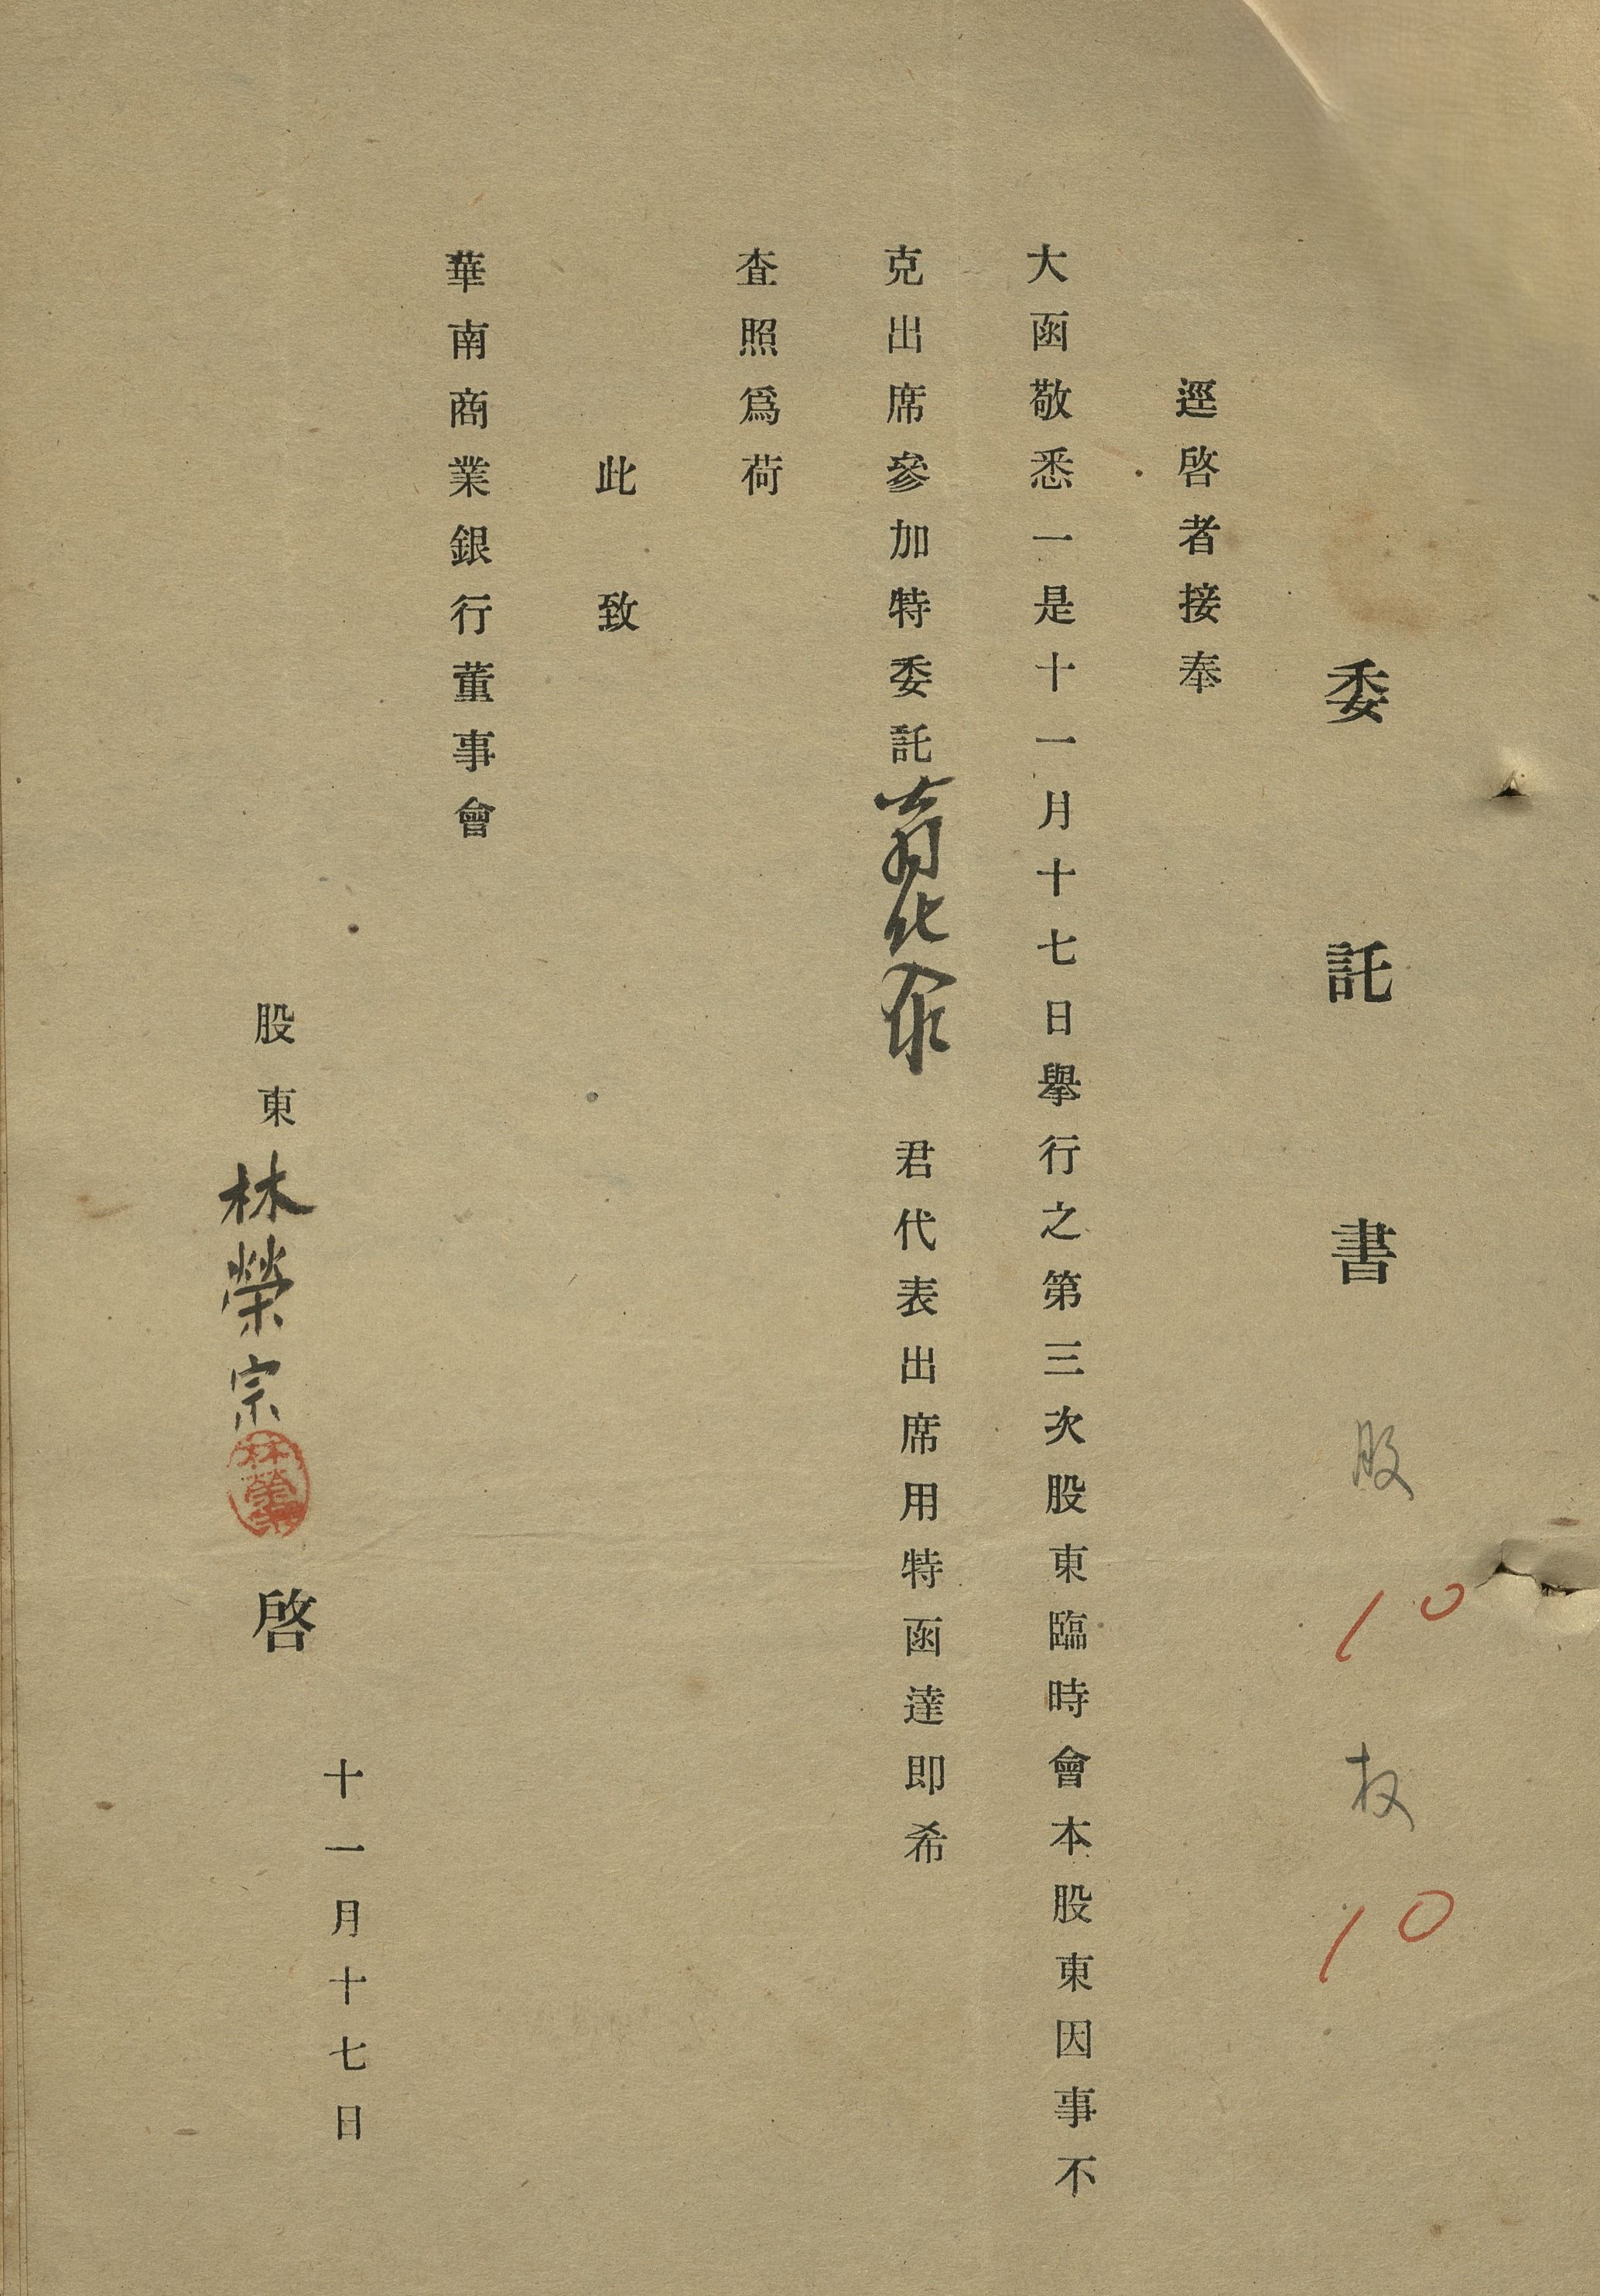 委託書
股 10
权 10
逕啓者接奉
大函敬悉一是十一月十七日舉行之第三次股東臨時會本股東因事不
克出席參加特委託 君代表出席用特函達即希
查照爲荷
此致
華南商業銀行董事會
十一月十七日
股東林榮宗 啓
林榮宗